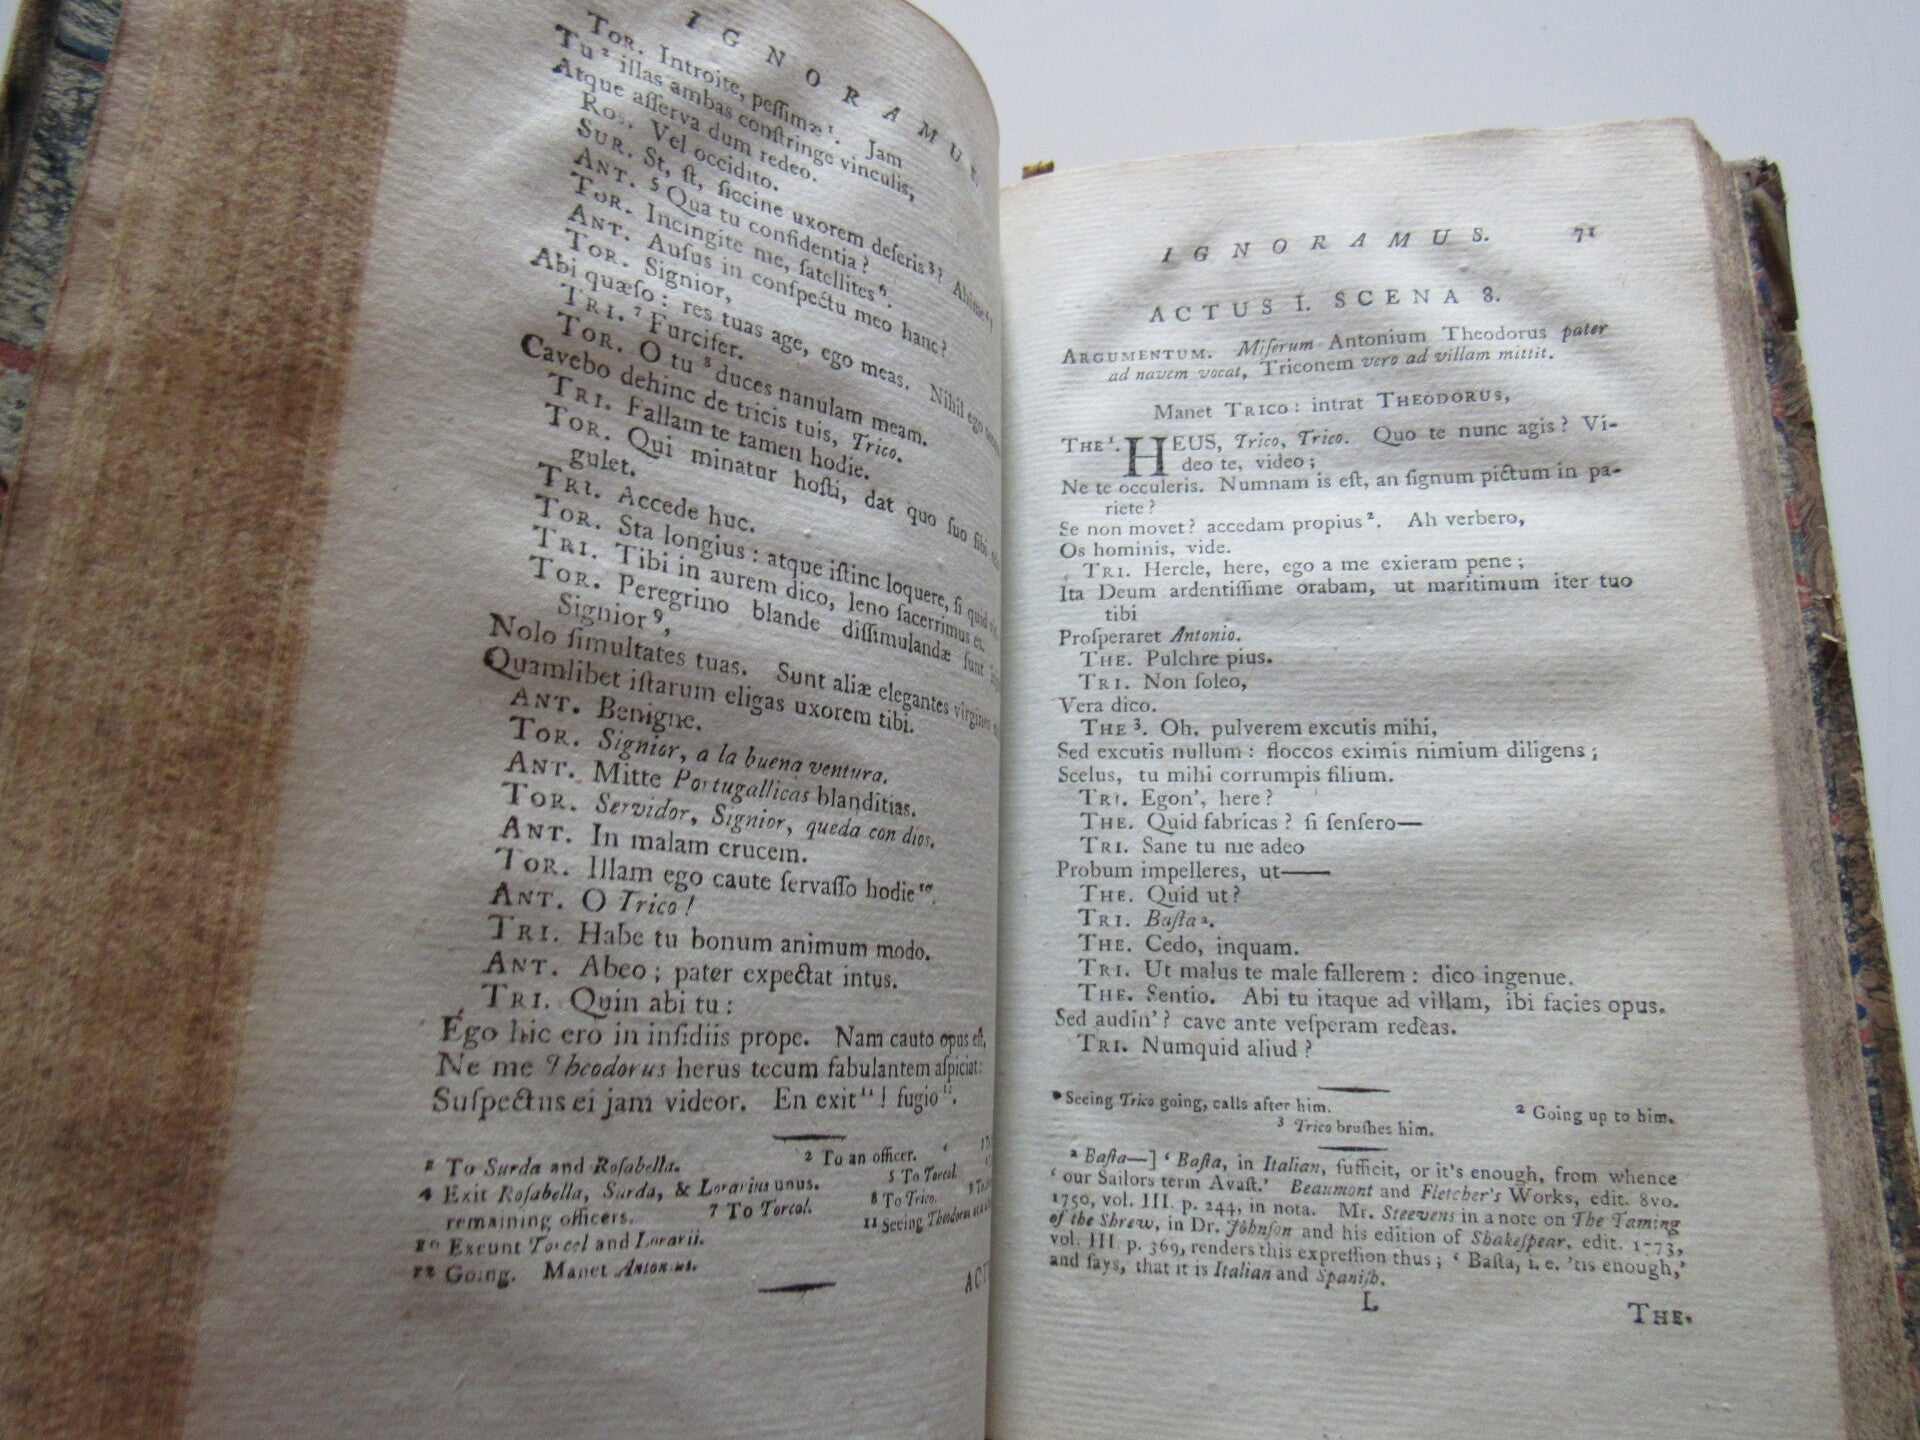 IGNORAMUS.
TOR. Introite, peſſimæ ¹. Jam
Tu ² illas ambas conſtringe vinculis,
Atque aſſerva dum redeo.
ROS. Vel occidito.
SUR. St, ſt, ſiccine uxorem deſeris ³? Ahime ⁴!
ANT. ⁵ Qua tu confidentia?
TOR. Incingite me, ſatellites ⁶.
ANT. Auſus in conſpectu meo hanc?
TOR. Signior,
Abi quæſo: res tuas age, ego meas. Nihil ego
TRI. ⁷ Furcifer.
TOR. O tu ⁸ duces nanulam meam.
Cavebo dehinc de tricis tuis, Trico.
TRI. Fallam te tamen hodie.
TOR. Qui minatur hoſti, dat quo ſuo ſibi
gulet.
TRI. Accede huc.
TOR. Sta longius: atque iſtinc loquere, ſi quid vis.
TRI. Tibi in aurem dico, leno ſacerrimus es.
TOR. Peregrino blande diſſimulandæ ſunt
Signior ⁹,
Nolo ſimultates tuas. Sunt aliæ elegantes virgines
Quamlibet iſtarum eligas uxorem tibi.
ANT. Benigne.
TOR. Signior, a la buena ventura.
ANT. Mitte Portugallicas blanditias.
TOR. Servidor, Signior, queda con dios.
ANT. In malam crucem.
TOR. Illam ego caute ſervaſſo hodie ¹⁰.
ANT. O Trico!
TRI. Habe tu bonum animum modo.
ANT. Abeo; pater expectat intus.
TRI. Quin abi tu:
Ego hic ero in inſidiis prope. Nam cauto opus eſt,
Ne me Theodorus herus tecum fabulantem aſpiciat:
Suſpectus ei jam videor. En exit ¹¹! fugio ¹².
¹ To Surda and Roſabella. ² To an officer.
⁴ Exit Roſabella, Surda, & Lorarius unus. ⁵ To Torcol.
remaining officers. ⁷ To Torcol. ⁸ To Trico. ⁹ To
¹⁰ Exeunt Torcol and Lorarii. ¹¹ Seeing Theodorus
¹² Going. Manet Antonius.
IGNORAMUS. 71
ACTUS I. SCENA 8.
ARGUMENTUM. Miſerum Antonium Theodorus pater
ad navem vocat, Triconem vero ad villam mittit.
Manet TRICO: intrat THEODORUS,
THE ¹. HEUS, Trico, Trico. Quo te nunc agis? Vi-
deo te, video;
Ne te occuleris. Numnam is eſt, an ſignum pictum in pa-
riete?
Se non movet? accedam propius ². Ah verbero,
Os hominis, vide.
TRI. Hercle, here, ego a me exieram pene;
Ita Deum ardentiſſime orabam, ut maritimum iter tuo
tibi
Proſperaret Antonio.
THE. Pulchre pius.
TRI. Non ſoleo,
Vera dico.
THE ³. Oh, pulverem excutis mihi,
Sed excutis nullum: floccos eximis nimium diligens;
Scelus, tu mihi corrumpis filium.
TRI. Egon', here?
THE. Quid fabricas? ſi ſenſero—
TRI. Sane tu me adeo
Probum impelleres, ut——
THE. Quid ut?
TRI. Baſta ª.
THE. Cedo, inquam.
TRI. Ut malus te male fallerem: dico ingenue.
THE. Sentio. Abi tu itaque ad villam, ibi facies opus.
Sed audin'? cave ante veſperam redeas.
TRI. Numquid aliud?
¹ Seeing Trico going, calls after him. ² Going up to him.
³ Trico bruſhes him.
ª Baſta—] ' Baſta, in Italian, ſufficit, or it's enough, from whence
' our Sailors term Avaſt.' Beaumont and Fletcher's Works, edit. 8vo.
1750, vol. III. p. 244, in nota. Mr. Steevens in a note on The Taming
of the Shrew, in Dr. Johnſon and his edition of Shakeſpear, edit. 1773,
vol. III. p. 369, renders this expreſſion thus; ' Baſta, i. e. 'tis enough,'
and ſays, that it is Italian and Spaniſh.
L THE.